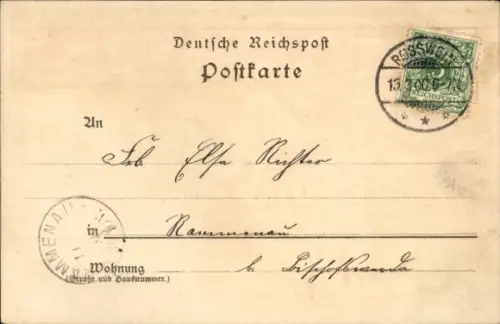 Deutsche Reichspost
Postkarte
ROSSWEIN
13.3.00.6-7N.
REICHSPOST
An
Frl. Else Richter
in Rammenau
RAMMENAU
Wohnung
(Straße und Hausnummer.)
b. Bischofswerda